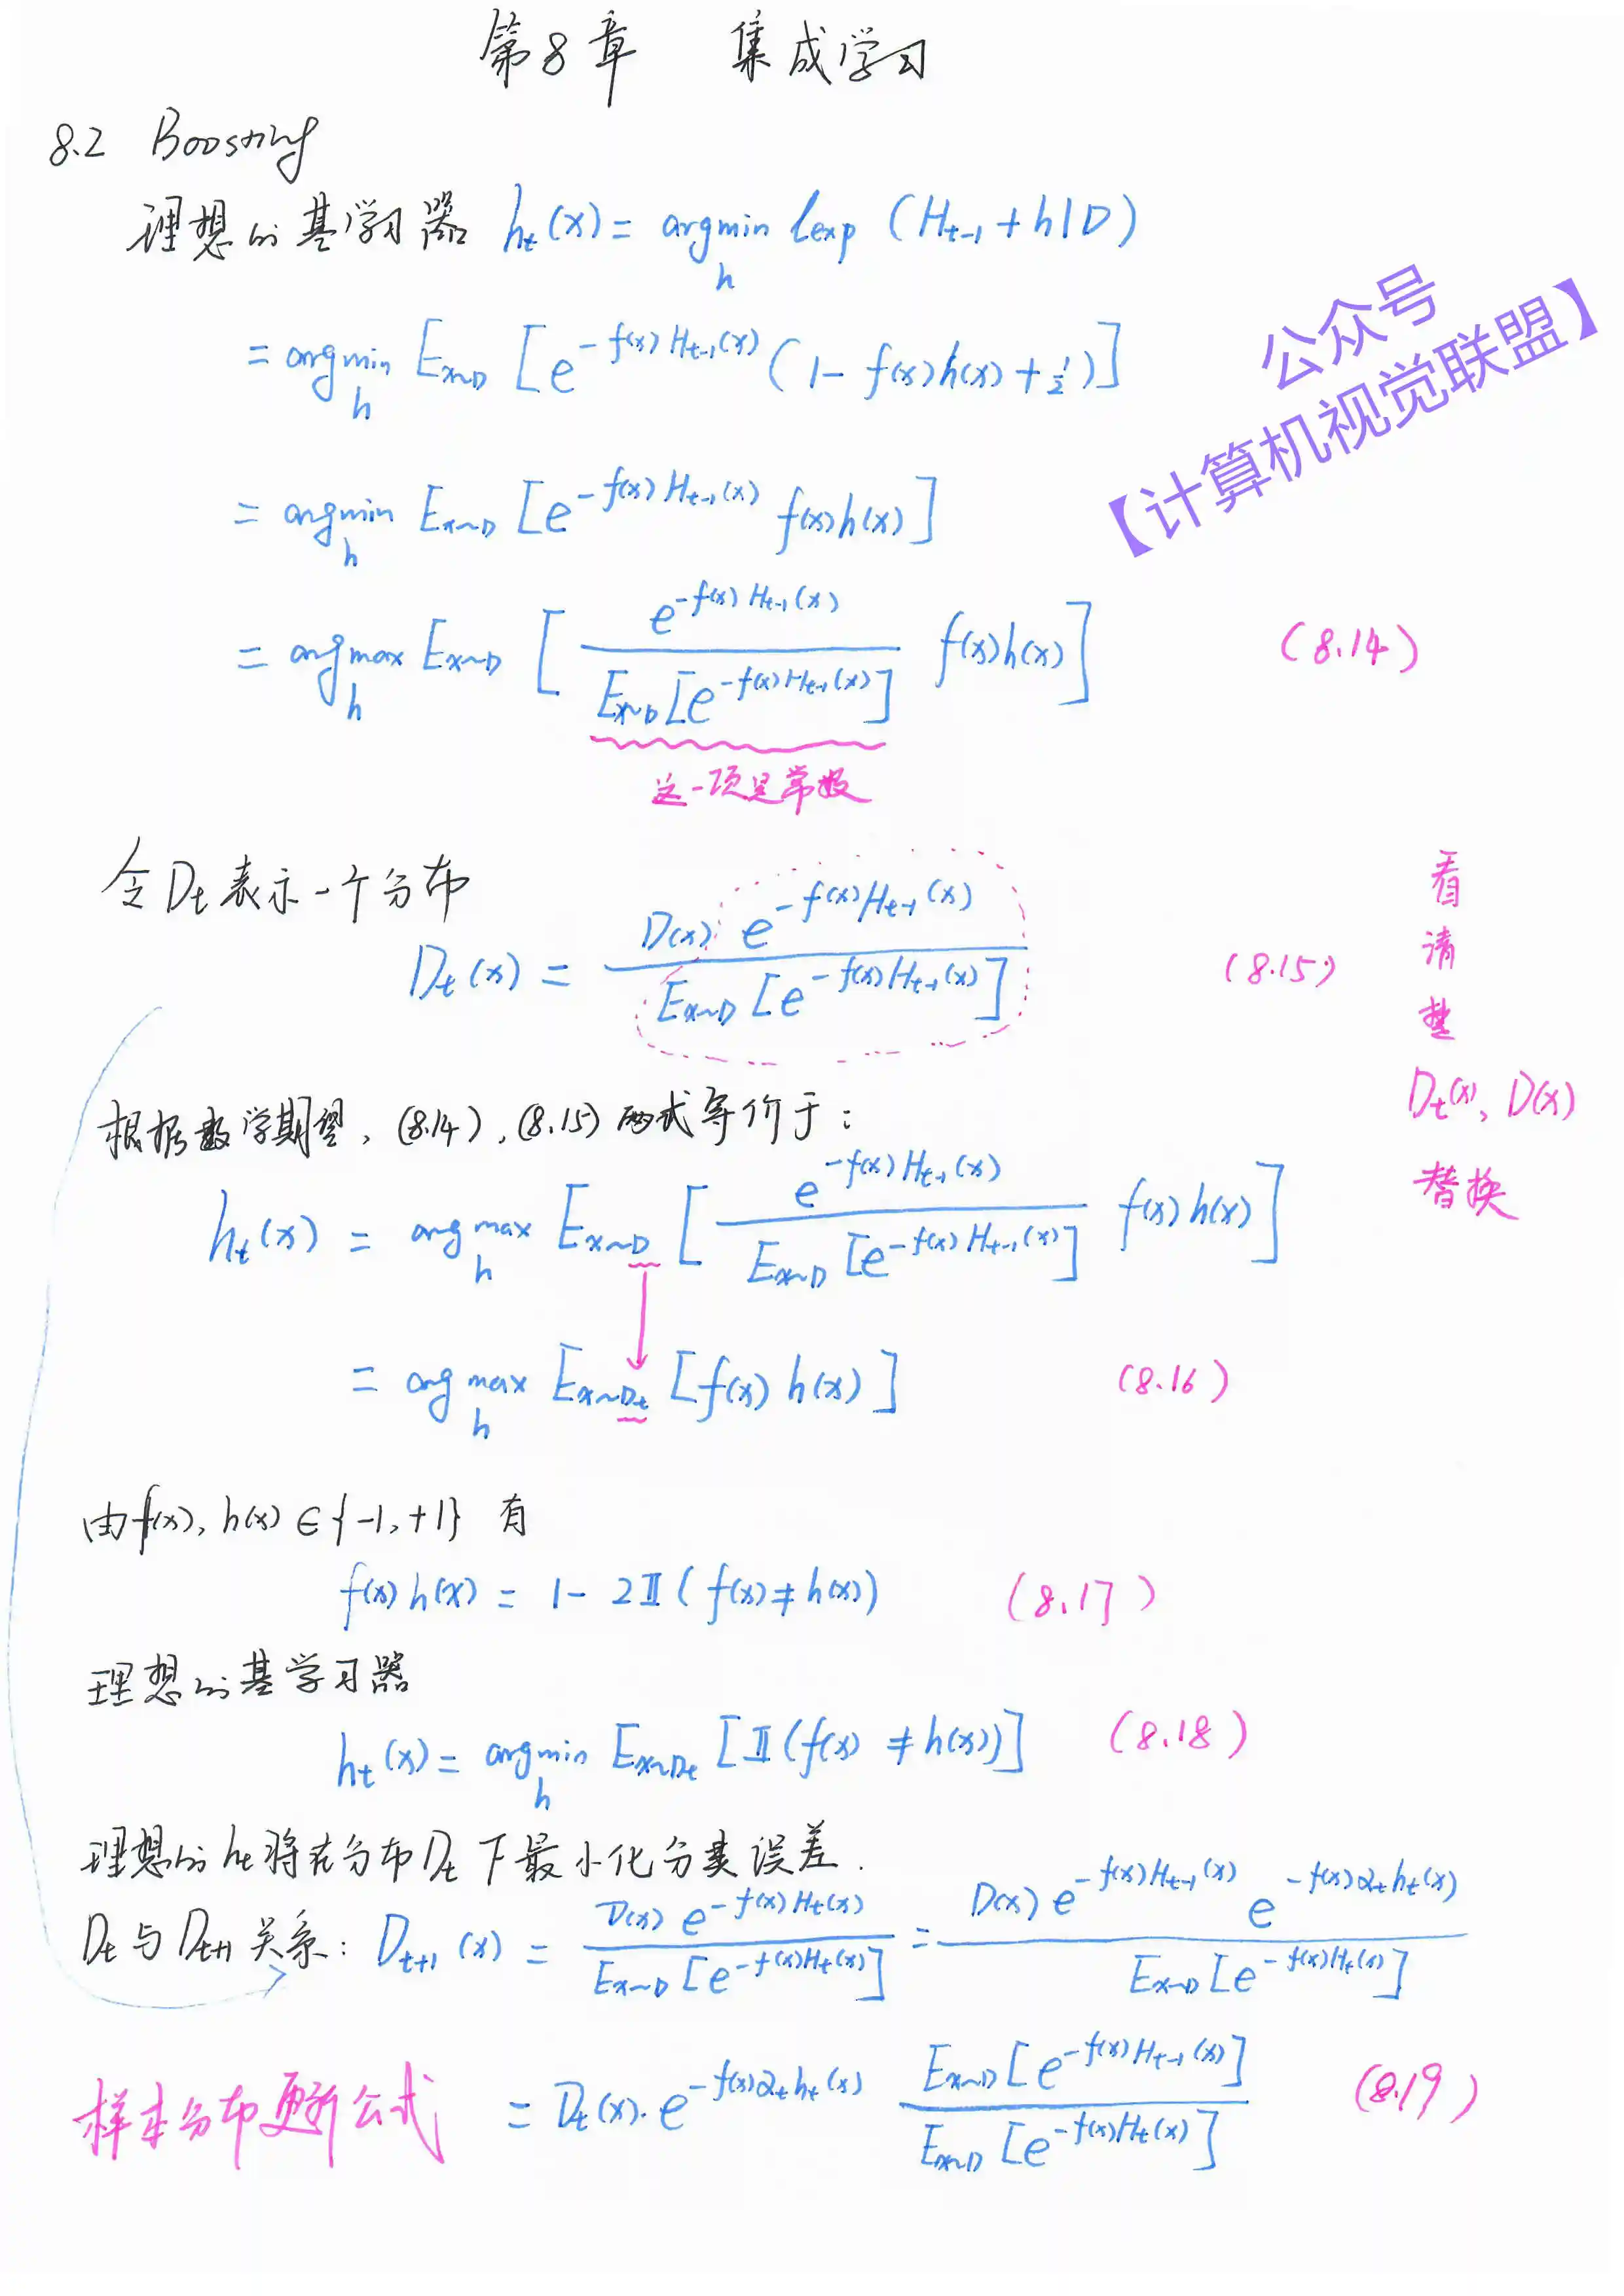 第8章 集成学习
8.2 Boosting
理想的基学习器 hₜ(x) = argmin_h ℓexp (Hₜ₋₁ + h|D)
= argmin_h E_{x~D} [e^{-f(x)Hₜ₋₁(x)} (1 - f(x)h(x) + ½)]
公众号
【计算机视觉联盟】
= argmin_h E_{x~D} [e^{-f(x)Hₜ₋₁(x)} f(x)h(x)]
= argmax_h E_{x~D} [ e^{-f(x)Hₜ₋₁(x)} / E_{x~D}[e^{-f(x)Hₜ₋₁(x)}] f(x)h(x) ] (8.14)
这一项是常数
令Dₜ表示一个分布
Dₜ(x) = D(x) e^{-f(x)Hₜ₋₁(x)} / E_{x~D}[e^{-f(x)Hₜ₋₁(x)}] (8.15)
看
清
楚
Dₜ(x), D(x)
替换
根据数学期望, (8.14), (8.15) 两式等价于:
hₜ(x) = argmax_h E_{x~D} [ e^{-f(x)Hₜ₋₁(x)} / E_{x~D}[e^{-f(x)Hₜ₋₁(x)}] f(x)h(x) ]
= argmax_h E_{x~Dₜ} [f(x) h(x)] (8.16)
由f(x), h(x) ∈ {-1, +1} 有
f(x)h(x) = 1 - 2𝕀(f(x)≠h(x)) (8.17)
理想的基学习器
hₜ(x) = argmin_h E_{x~Dₜ} [𝕀(f(x) ≠ h(x))] (8.18)
理想的hₜ将在分布Dₜ下最小化分类误差.
Dₜ与Dₜ₊₁关系: Dₜ₊₁(x) = D(x) e^{-f(x)Hₜ(x)} / E_{x~D}[e^{-f(x)Hₜ(x)}] = D(x) e^{-f(x)Hₜ₋₁(x)} e^{-f(x)αₜhₜ(x)} / E_{x~D}[e^{-f(x)Hₜ(x)}]
样本分布更新公式 = Dₜ(x)·e^{-f(x)αₜhₜ(x)} E_{x~D}[e^{-f(x)Hₜ₋₁(x)}] / E_{x~D}[e^{-f(x)Hₜ(x)}] (8.19)